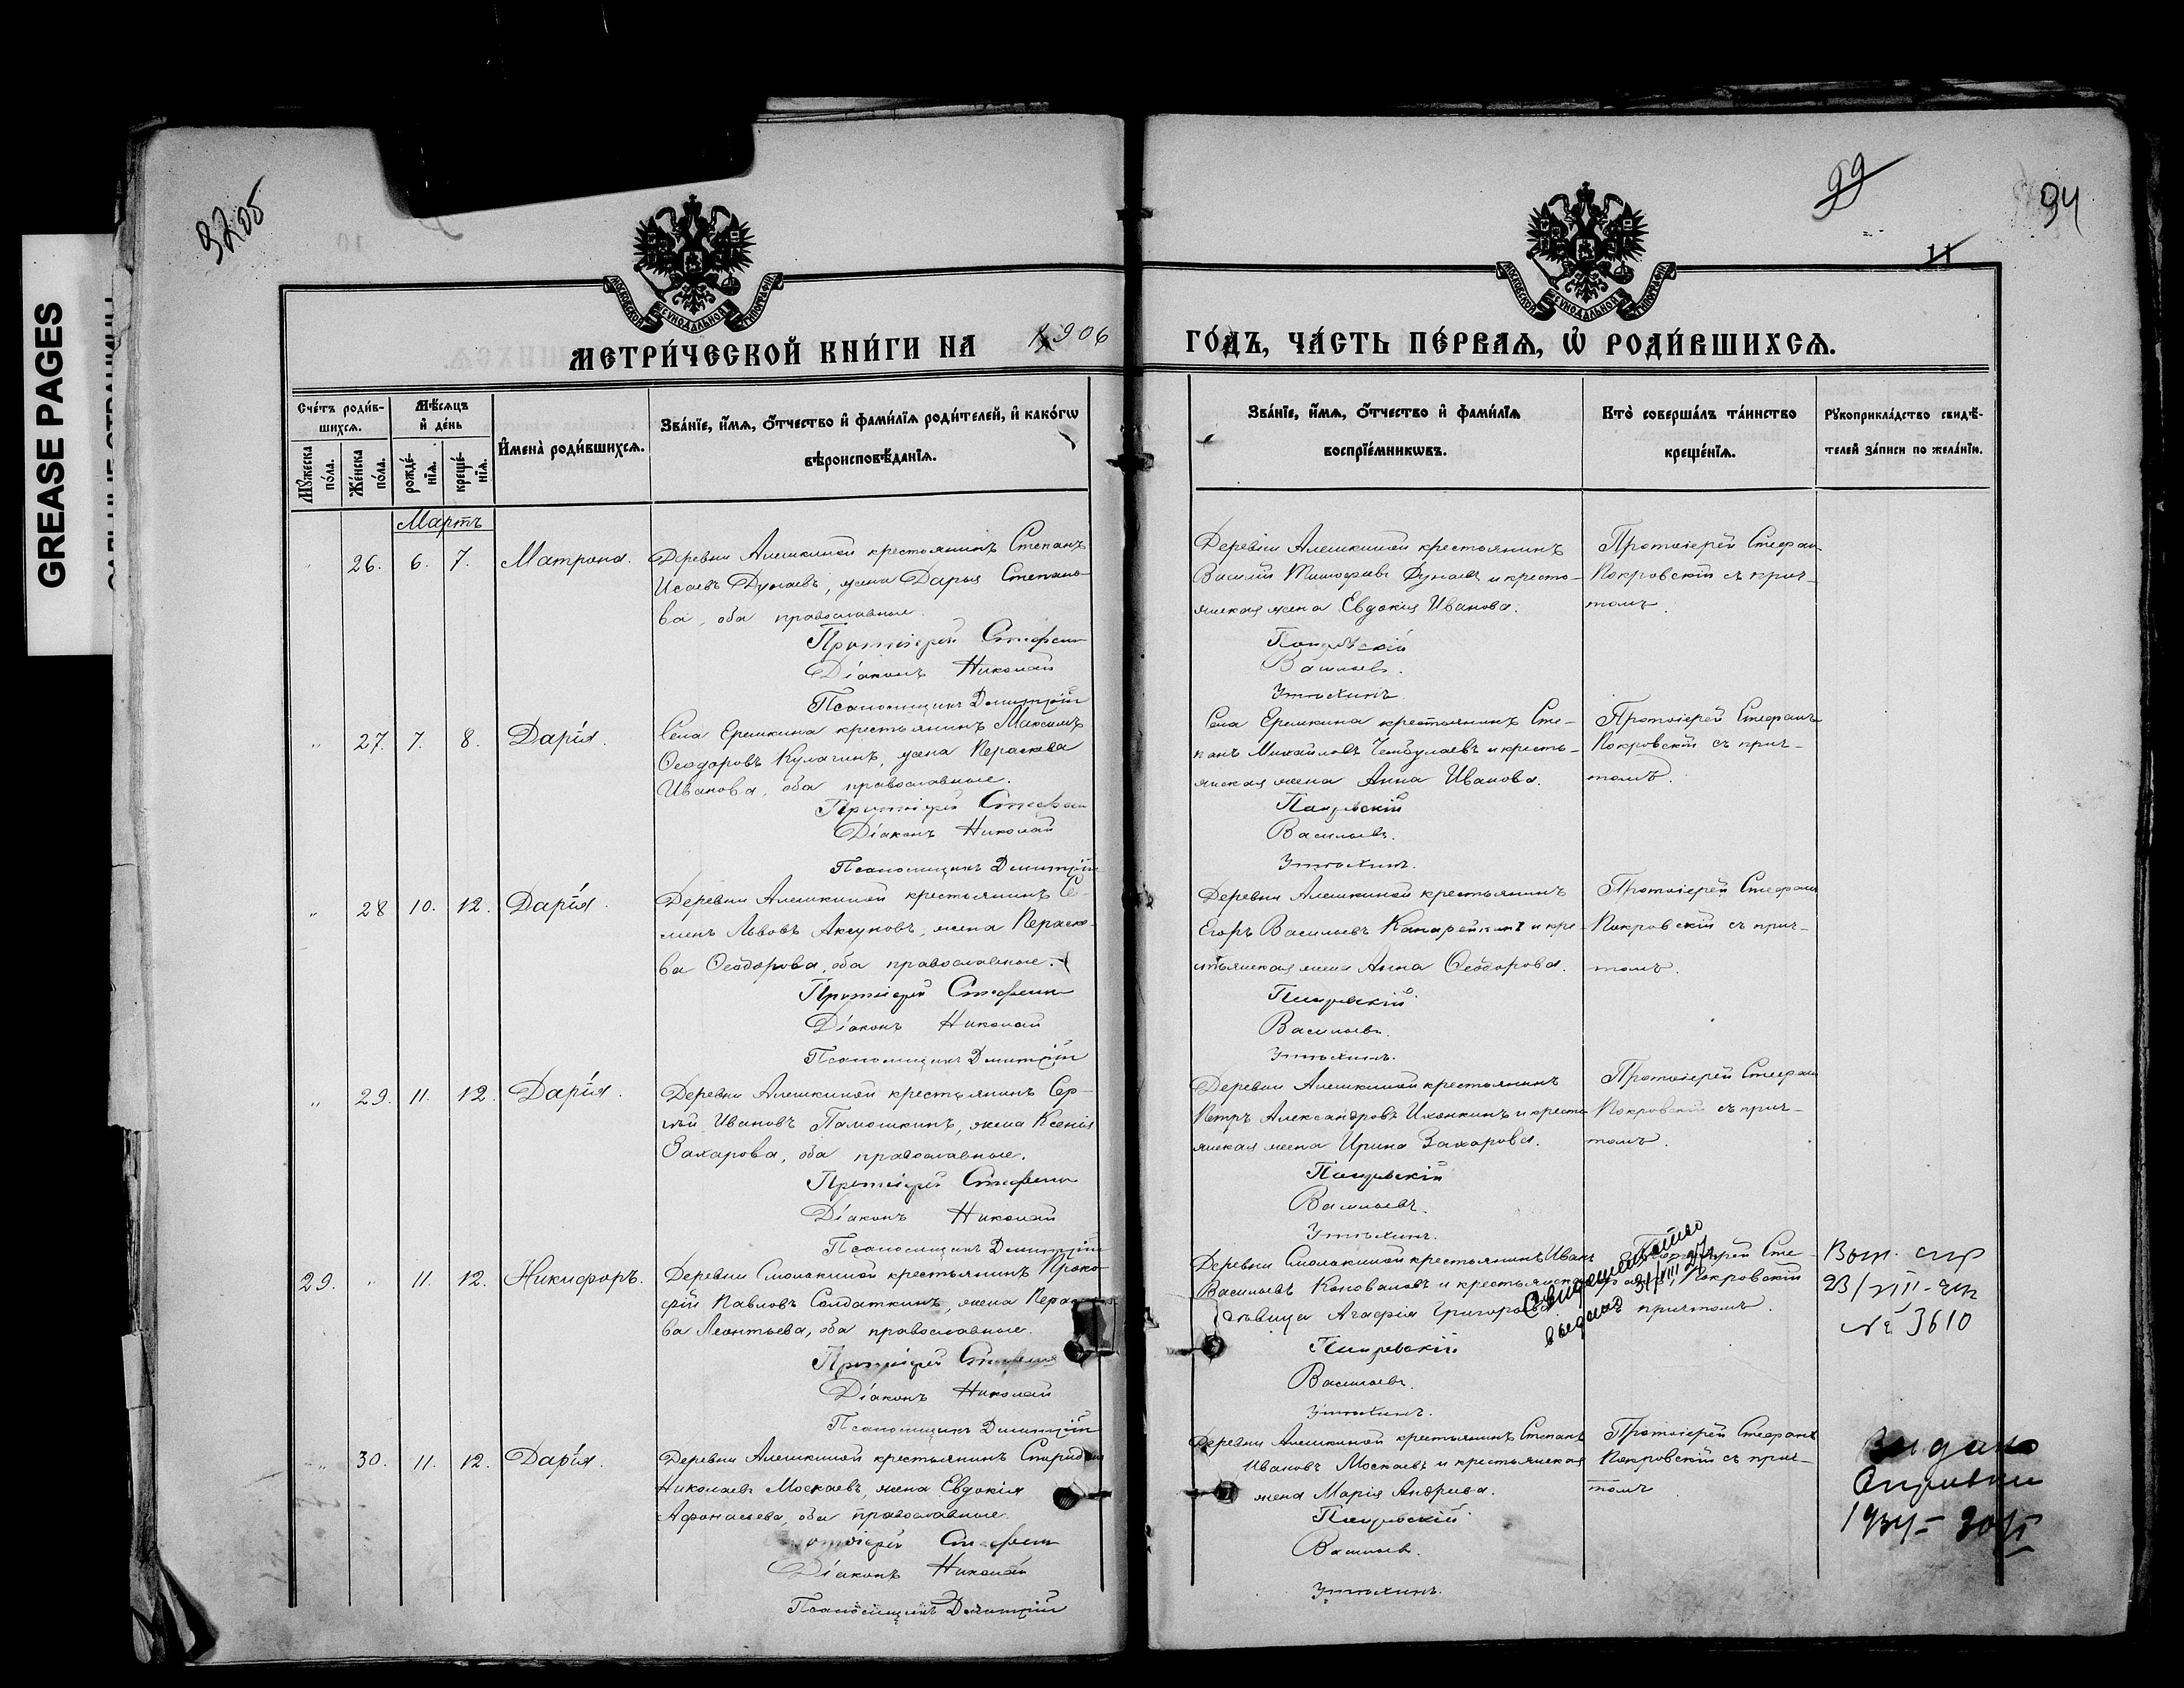 GREASE PAGES
9205
99
94
11
МОСКОВСКОЙ СѴНОДАЛЬНОЙ ТИПОГРАФІИ
МОСКОВСКОЙ СѴНОДАЛЬНОЙ ТИПОГРАФІИ
МЕТРИ́ЧЕСКОЙ КНИ́ГИ НА 1906 ГО́ДЪ, ЧА́СТЬ ПЕ́РВАѦ, Ѡ҆ РОДИ́ВШИХСѦ.
Сче́тъ роди́вшихсѧ.
Мꙋ́жеска по́ла.
Же́нска по́ла.
Мѣ́сѧцъ и҆ де́нь
рожде́нїѧ.
креще́нїѧ.
И҆мена̀ роди́вшихсѧ.
Зва́нїе, и҆́мѧ, ѻ҆́тчество и҆ фами́лїѧ роди́телей, и҆ како́гѡ
вѣроисповѣ́данїѧ.
Зва́нїе, и҆́мѧ, ѻ҆́тчество и҆ фами́лїѧ
воспрїе́мникѡвъ.
Кто̀ соверша́лъ та́инство
креще́нїѧ.
Рꙋкоприкла́дство свидѣ́-
телей за́писи по жела́нїю.
Мартъ
26. 6. 7. Матрона.
Деревни Алешкиной крестьянинъ Степанъ
Исаевъ Дунаевъ, жена Дарья Степано-
ва, оба православные.
Протоіерей Стефанъ
Діаконъ Николай
Псаломщикъ Димитрій
Деревни Алешкиной крестьянинъ
Василій Тимофеевъ Дунаевъ и кресть-
янская жена Евдокія Иванова.
Покровскій
Васильевъ.
Утѣхинъ.
Протоіерей Стефанъ
Покровскій съ прич-
томъ.
" 27. 7. 8. Дарія.
Села Еремкина крестьянинъ Максимъ
Ѳеодоровъ Кулагинъ, жена Параскева
Иванова, оба православные.
Протоіерей Стефанъ
Діаконъ Николай
Псаломщикъ Димитрій
Села Еремкина крестьянинъ Сте-
панъ Михайловъ Чембулаевъ и кресть-
янская жена Анна Иванова.
Покровскій
Васильевъ.
Утѣхинъ.
Протоіерей Стефанъ
Покровскій съ прич-
томъ.
" 28 10. 12. Дарія.
Деревни Алешкиной крестьянинъ Се-
менъ Львовъ Аксуновъ, жена Параске-
ва Ѳеодорова, оба православные.
Протоіерей Стефанъ
Діаконъ Николай
Псаломщикъ Димитрій
Деревни Алешкиной крестьянинъ
Егоръ Васильевъ Канарейкинъ и кре-
стьянская жена Анна Ѳеодорова.
Покровскій
Васильевъ.
Утѣхинъ.
Протоіерей Стефанъ
Покровскій съ прич-
томъ.
" 29. 11. 12. Дарія.
Деревни Алешкиной крестьянинъ Сер-
гѣй Ивановъ Памошкинъ, жена Ксенія
Захарова, оба православные.
Протоіерей Стефанъ
Діаконъ Николай
Псаломщикъ Димитрій
Деревни Алешкиной крестьянинъ
Петръ Александровъ Ихонкинъ и кресть-
янская жена Ирина Захарова.
Покровскій
Васильевъ.
Утѣхинъ.
Протоіерей Стефанъ
Покровскій съ прич-
томъ.
29. " 11. 12. Никифоръ.
Деревни Смолакиной крестьянинъ Проко-
фій Павловъ Солдаткинъ, жена Параске-
ва Леонтьева, оба православные.
Протоіерей Стефанъ
Діаконъ Николай
Псаломщикъ Димитрій
Деревни Смолакиной крестьянинъ Иванъ
Васильевъ Коноваловъ и крестьянская
дѣвица Агафія Григорьева.
Покровскій
Васильевъ.
Утѣхинъ.
Протоіерей Сте-
фанъ Покровскій
съ причтомъ.
Свидетельство
выдано 31/VIII 27
Вып. спр
23/VIII
№ 3610
" 30. 11. 12. Дарія.
Деревни Алешкиной крестьянинъ Спиридонъ
Николаевъ Москаевъ, жена Евдокія
Афонасьева, оба православные.
Протоіерей Стефанъ
Діаконъ Николай
Псаломщикъ Димитрій
Деревни Алешкиной крестьянинъ Степанъ
Ивановъ Москаевъ и крестьянская
жена Марія Андреева.
Покровскій
Васильевъ.
Утѣхинъ.
Протоіерей Стефанъ
Покровскій съ прич-
томъ
Выдано
Справки